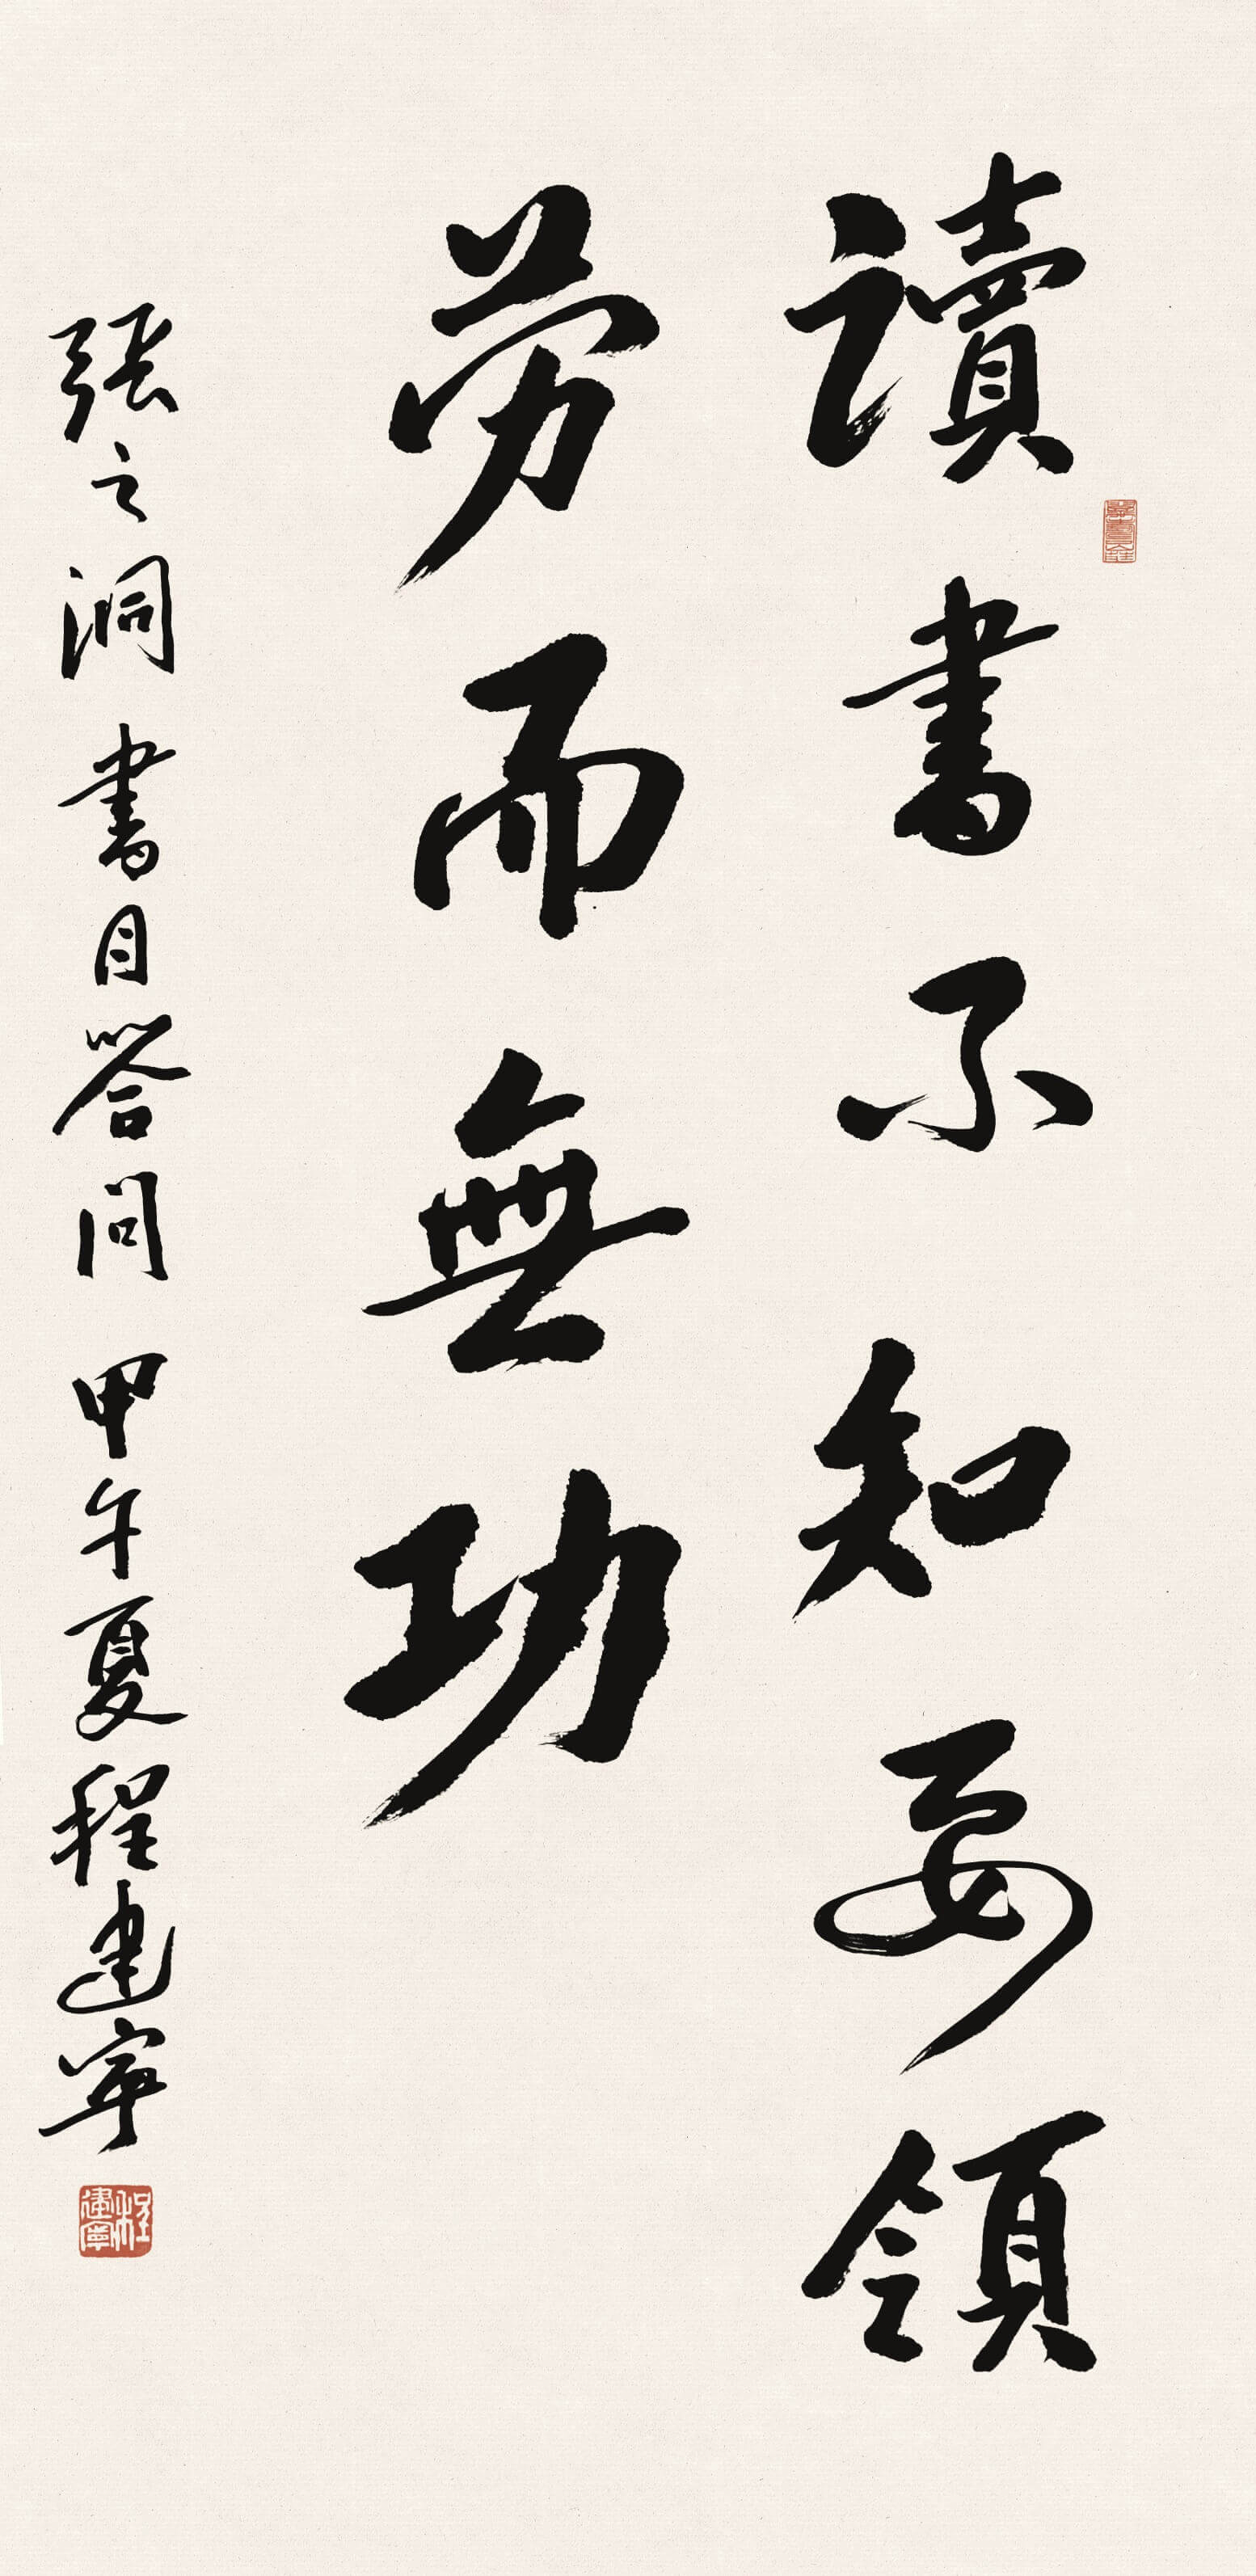 讀書不知要領
勞而無功
張之洞書目答問 甲午夏 程建寧
程建寧